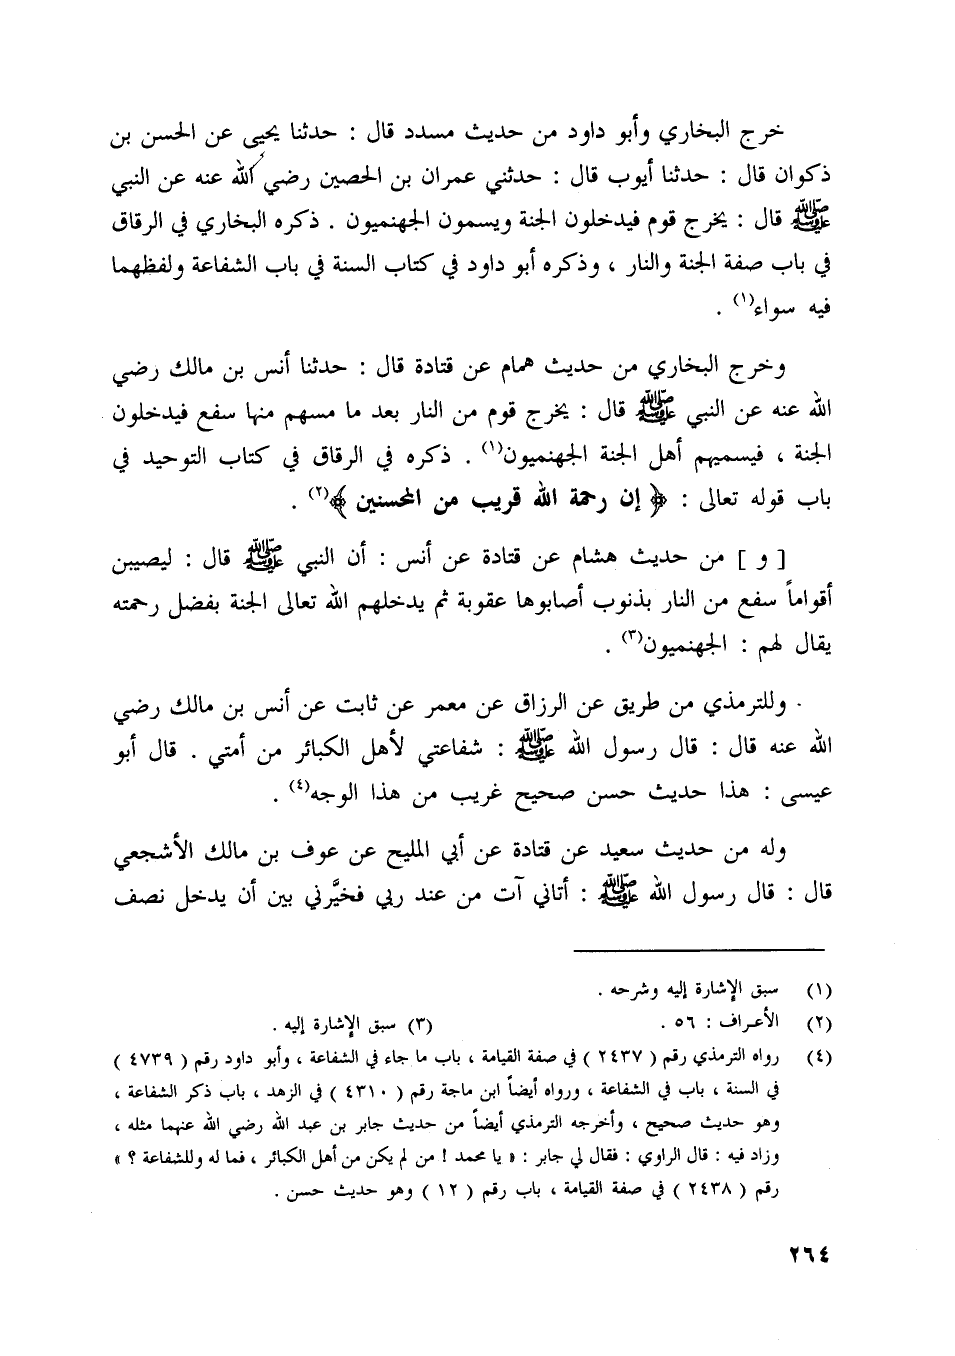 خرج البخاري وأبو داود من حديث مسدد قال : حدثنا يحيى عن الحسن بن
ذكوان قال : حدثنا أيوب قال : حدثني عمران بن الحصين رضي الله عنه عن النبي
ﷺ قال : يخرج قوم فيدخلون الجنة ويسمون الجهنميون . ذكره البخاري في الرقاق
في باب صفة الجنة والنار ، وذكره أبو داود في كتاب السنة في باب الشفاعة ولفظهما
فيه سواء(١) .
وخرج البخاري من حديث همام عن قتادة قال : حدثنا أنس بن مالك رضي
الله عنه عن النبي ﷺ قال : يخرج قوم من النار بعد ما مسهم منها سفع فيدخلون
الجنة ، فيسميهم أهل الجنة الجهنميون(١) . ذكره في الرقاق في كتاب التوحيد في
باب قوله تعالى : ﴿ إن رحمة الله قريب من المحسنين ﴾(٢) .
[ و ] من حديث هشام عن قتادة عن أنس : أن النبي ﷺ قال : ليصيبن
أقواماً سفع من النار بذنوب أصابوها عقوبة ثم يدخلهم الله تعالى الجنة بفضل رحمته
يقال لهم : الجهنميون(٣) .
وللترمذي من طريق عن الرزاق عن معمر عن ثابت عن أنس بن مالك رضي
الله عنه قال : قال رسول الله ﷺ : شفاعتي لأهل الكبائر من أمتي . قال أبو
عيسى : هذا حديث حسن صحيح غريب من هذا الوجه(٤) .
وله من حديث سعيد عن قتادة عن أبي المليح عن عوف بن مالك الأشجعي
قال : قال رسول الله ﷺ : أتاني آت من عند ربي فخيَّرني بين أن يدخل نصف
(١) سبق الإشارة إليه وشرحه .
(٢) الأعراف : ٥٦ . (٣) سبق الإشارة إليه .
(٤) رواه الترمذي رقم ( ٢٤٣٧ ) في صفة القيامة ، باب ما جاء في الشفاعة ، وأبو داود رقم ( ٤٧٣٩ )
في السنة ، باب في الشفاعة ، ورواه أيضاً ابن ماجة رقم ( ٤٣١٠ ) في الزهد ، باب ذكر الشفاعة ،
وهو حديث صحيح ، وأخرجه الترمذي أيضاً من حديث جابر بن عبد الله رضي الله عنهما مثله ،
وزاد فيه : قال الراوي : فقال لي جابر : « يا محمد ! من لم يكن من أهل الكبائر ، فما له وللشفاعة ؟ »
رقم ( ٢٤٣٨ ) في صفة القيامة ، باب رقم ( ١٢ ) وهو حديث حسن .
٢٦٤